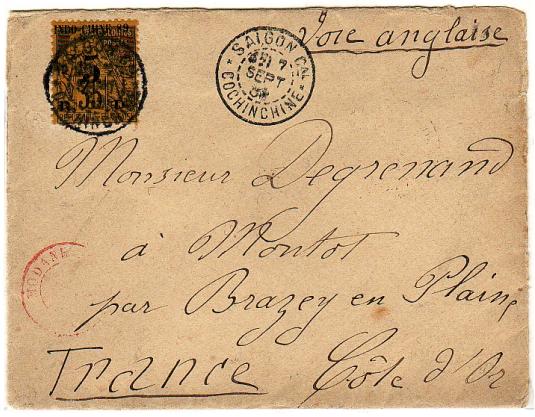 INDO-CHINE 89.
5
35
SAIGON CAL
7
SEPT
COCHINCHINE
Voie anglaise
Monsieur Degrenand
à Montot
MODANE
par Brazey en Plaine
France Côte d'Or